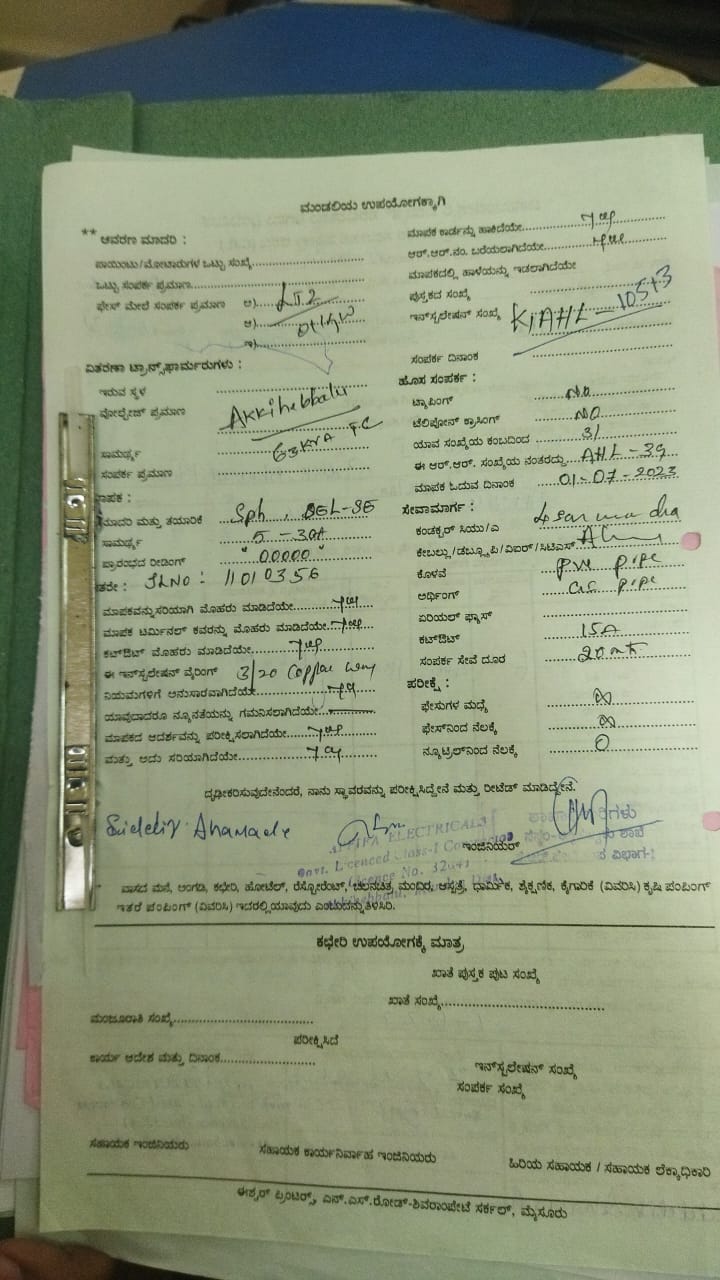 ಮಂಡಲಿಯ ಉಪಯೋಗಕ್ಕಾಗಿ
** ಆವರಣ ಮಾದರಿ :
ಪಾಯಿಂಟು/ಮೋಟಾರುಗಳ ಒಟ್ಟು ಸಂಖ್ಯೆ
ಒಟ್ಟು ಸಂಪರ್ಕ ಪ್ರಮಾಣ
ಫೇಸ್ ಮೇಲೆ ಸಂಪರ್ಕ ಪ್ರಮಾಣ ಅ) LT2
ಆ)
ಇ)
ವಿತರಣಾ ಟ್ರಾನ್ಸ್‌ಫಾರ್ಮರುಗಳು :
ಇರುವ ಸ್ಥಳ
ವೋಲ್ಟೇಜ್ ಪ್ರಮಾಣ Akkihebbalu
ಸಾಮರ್ಥ್ಯ 63 KVA T.C
ಸಂಪರ್ಕ ಪ್ರಮಾಣ
ಮಾಪಕ :
ಮಾದರಿ ಮತ್ತು ತಯಾರಿಕೆ Sph,
ಸಾಮರ್ಥ್ಯ 5-30A
ಪ್ರಾರಂಭದ ರೀಡಿಂಗ್ "00000"
ಇತರೇ : SLNO : 11010356
ಮಾಪಕವನ್ನು ಸರಿಯಾಗಿ ಮೊಹರು ಮಾಡಿದೆಯೇ yes
ಮಾಪಕ ಟರ್ಮಿನಲ್ ಕವರನ್ನು ಮೊಹರು ಮಾಡಿದೆಯೇ yes
ಕಟ್‌ಔಟ್ ಮೊಹರು ಮಾಡಿದೆಯೇ yes
ಈ ಇನ್‌ಸ್ಟಲೇಷನ್ ವೈರಿಂಗ್ 3/20
ನಿಯಮಗಳಿಗೆ ಅನುಸಾರವಾಗಿದೆಯೇ yes
ಯಾವುದಾದರೂ ನ್ಯೂನತೆಯನ್ನು ಗಮನಿಸಲಾಗಿದೆಯೇ
ಮಾಪಕದ ಆದರ್ಶವನ್ನು ಪರೀಕ್ಷಿಸಲಾಗಿದೆಯೇ yes
ಮತ್ತು ಅದು ಸರಿಯಾಗಿದೆಯೇ yes
ಮಾಪಕ ಕಾರ್ಡನ್ನು ಹಾಕಿದೆಯೇ yes
ಆರ್.ಆರ್.ನಂ. ಬರೆಯಲಾಗಿದೆಯೇ yes
ಮಾಪಕದಲ್ಲಿ ಹಾಳೆಯನ್ನು ಇಡಲಾಗಿದೆಯೇ
ಪುಸ್ತಕದ ಸಂಖ್ಯೆ
ಇನ್‌ಸ್ಟಲೇಷನ್ ಸಂಖ್ಯೆ KIAHL-10573
ಸಂಪರ್ಕ ದಿನಾಂಕ
ಹೊಸ ಸಂಪರ್ಕ :
ಟ್ಯಾಪಿಂಗ್ NO
ಟೆಲಿಫೋನ್ ಕ್ರಾಸಿಂಗ್ NO
ಯಾವ ಸಂಖ್ಯೆಯ ಕಂಬದಿಂದ 31
ಈ ಆರ್.ಆರ್. ಸಂಖ್ಯೆಯ ನಂತರದ್ದು AHL-39
ಮಾಪಕ ಓದುವ ದಿನಾಂಕ 01-07-2023
ಸೇವಾಮಾರ್ಗ :
ಕಂಡಕ್ಟರ್ ಸಿಯು/ಎ
ಕೇಬಲ್ಲು/ಡಬ್ಲ್ಯೂಪಿ/ವಿಐರ್/ಸಿಟಿಎಸ್
ಕೊಳವೆ pvc pipe
ಅರ್ಥಿಂಗ್ G.I pipe
ಏರಿಯಲ್ ಫ್ಯೂಸ್
ಕಟ್‌ಔಟ್ 15A
ಸಂಪರ್ಕ ಸೇವೆ ದೂರ 20 mt
ಪರೀಕ್ಷೆ :
ಫೇಸುಗಳ ಮಧ್ಯೆ ∞
ಫೇಸ್‌ನಿಂದ ನೆಲಕ್ಕೆ ∞
ನ್ಯೂಟ್ರಲ್‌ನಿಂದ ನೆಲಕ್ಕೆ 0
ದೃಢೀಕರಿಸುವುದೇನೆಂದರೆ, ನಾನು ಸ್ಥಾವರವನ್ನು ಪರೀಕ್ಷಿಸಿದ್ದೇನೆ ಮತ್ತು ರೀಟೆಡ್ ಮಾಡಿದ್ದೇನೆ.
ಇಂಜಿನಿಯರ್
ELECTRICALS
Govt. Licenced Class-I
Licence No.
* ವಾಸದ ಮನೆ, ಅಂಗಡಿ, ಕಛೇರಿ, ಹೋಟೆಲ್, ರೆಸ್ಟೋರೆಂಟ್, ಚಲನಚಿತ್ರ, ಮಂದಿರ, ಆಸ್ಪತ್ರೆ, ಧಾರ್ಮಿಕ, ಶೈಕ್ಷಣಿಕ, ಕೈಗಾರಿಕೆ (ವಿವರಿಸಿ) ಕೃಷಿ ಪಂಪಿಂಗ್
ಇತರೆ ಪಂಪಿಂಗ್ (ವಿವರಿಸಿ) ಇದರಲ್ಲಿ ಯಾವುದು ಎಂಬುದನ್ನು ತಿಳಿಸಿರಿ.
ಕಛೇರಿ ಉಪಯೋಗಕ್ಕೆ ಮಾತ್ರ
ಖಾತೆ ಪುಸ್ತಕ ಪುಟ ಸಂಖ್ಯೆ
ಖಾತೆ ಸಂಖ್ಯೆ
ಮಂಜೂರಾತಿ ಸಂಖ್ಯೆ
ಪರೀಕ್ಷಿಸಿದೆ
ಕಾರ್ಯ ಆದೇಶ ಮತ್ತು ದಿನಾಂಕ
ಇನ್‌ಸ್ಟಲೇಷನ್ ಸಂಖ್ಯೆ
ಸಂಪರ್ಕ ಸಂಖ್ಯೆ
ಸಹಾಯಕ ಇಂಜಿನಿಯರು ಸಹಾಯಕ ಕಾರ್ಯನಿರ್ವಾಹ ಇಂಜಿನಿಯರು ಹಿರಿಯ ಸಹಾಯಕ / ಸಹಾಯಕ ಲೆಕ್ಕಾಧಿಕಾರಿ
ಈಶ್ವರ್ ಪ್ರಿಂಟರ್ಸ್, ಎನ್.ಎಸ್.ರೋಡ್-ಶಿವರಾಂಪೇಟೆ ಸರ್ಕಲ್, ಮೈಸೂರು